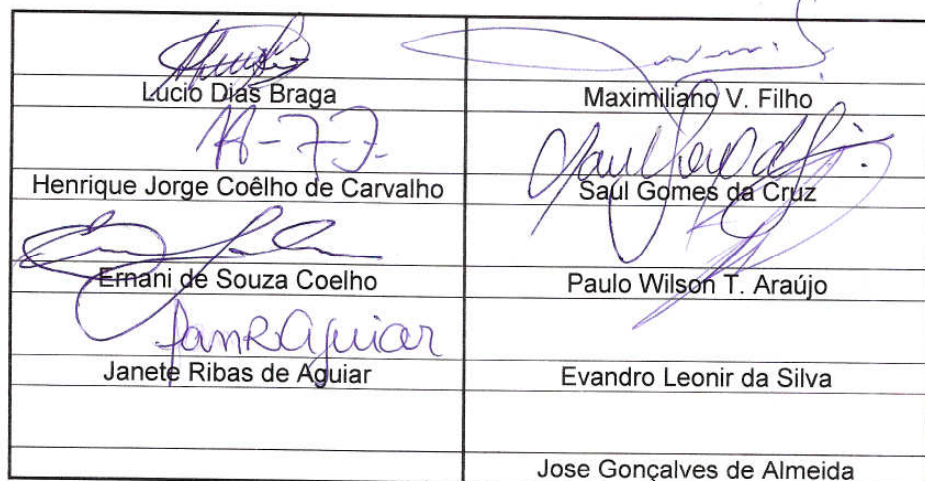 Lucio Dias Braga
Maximiliano V. Filho
Henrique Jorge Coêlho de Carvalho
Saul Gomes da Cruz
Ernani de Souza Coelho
Paulo Wilson T. Araújo
JanRAguiar
Janete Ribas de Aguiar
Evandro Leonir da Silva
Jose Gonçalves de Almeida